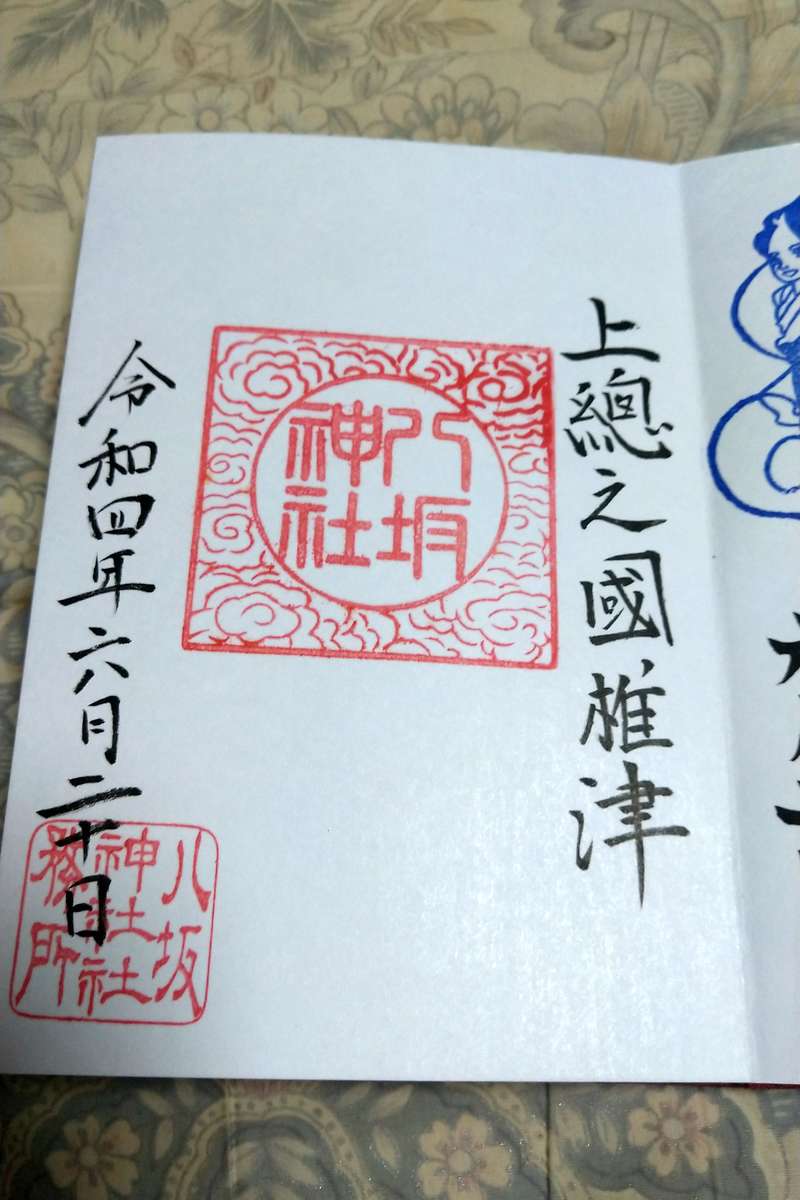 上總之國椎津
八坂
神社
令和四年六月二十日
八坂
神社社
務所